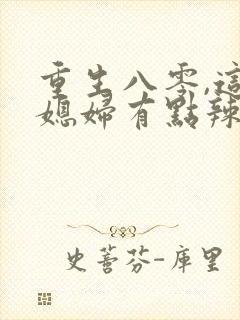 重生八零,這
媳婦有點辣
史蒈芬-庫里